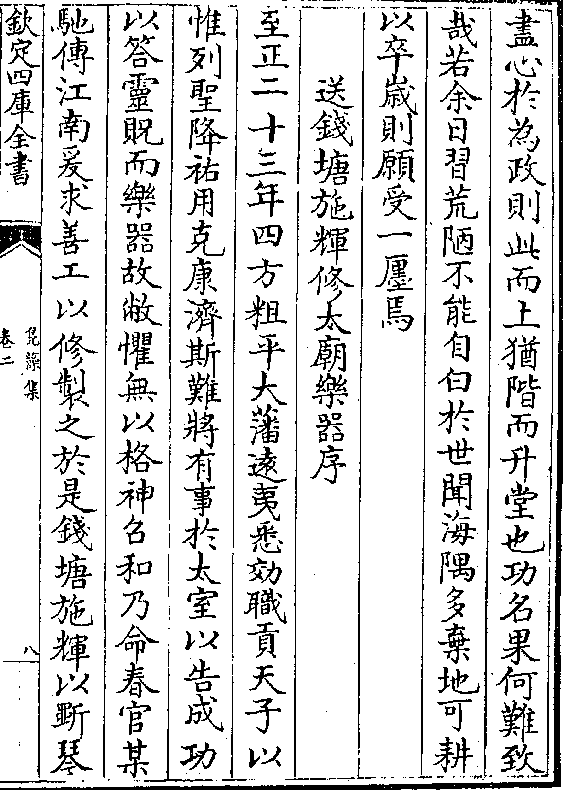 盡心於為政則此而上猶階而升堂也功名果何難致
哉若余日習荒陋不能自白於世聞海隅多棄地可耕
以卒歳則願受一廛焉
送錢塘施輝修太廟樂器序
至正二十三年四方粗平大藩逺夷悉効職貢天子以
惟列聖降祐用克康濟斯難將有事於太室以告成功
以答靈貺而樂器故敝懼無以格神召和乃命春官某
馳傳江南爰求善工以修製之於是錢塘施輝以斵琴
欽定四庫全書
鳬藻集
卷二
八